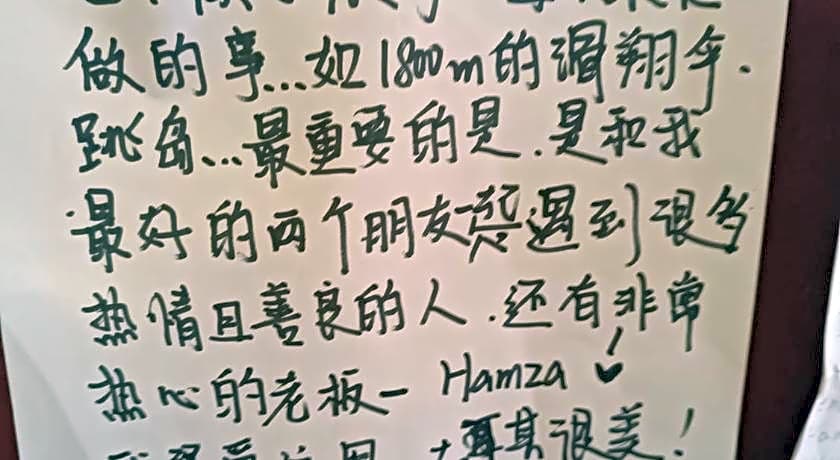 做的事...如1800m的滑翔伞.
跳岛...最重要的是.是和我
最好的两个朋友一起遇到很多
热情且善良的人.还有非常
热心的老板- Hamza ♥
土耳其很美!